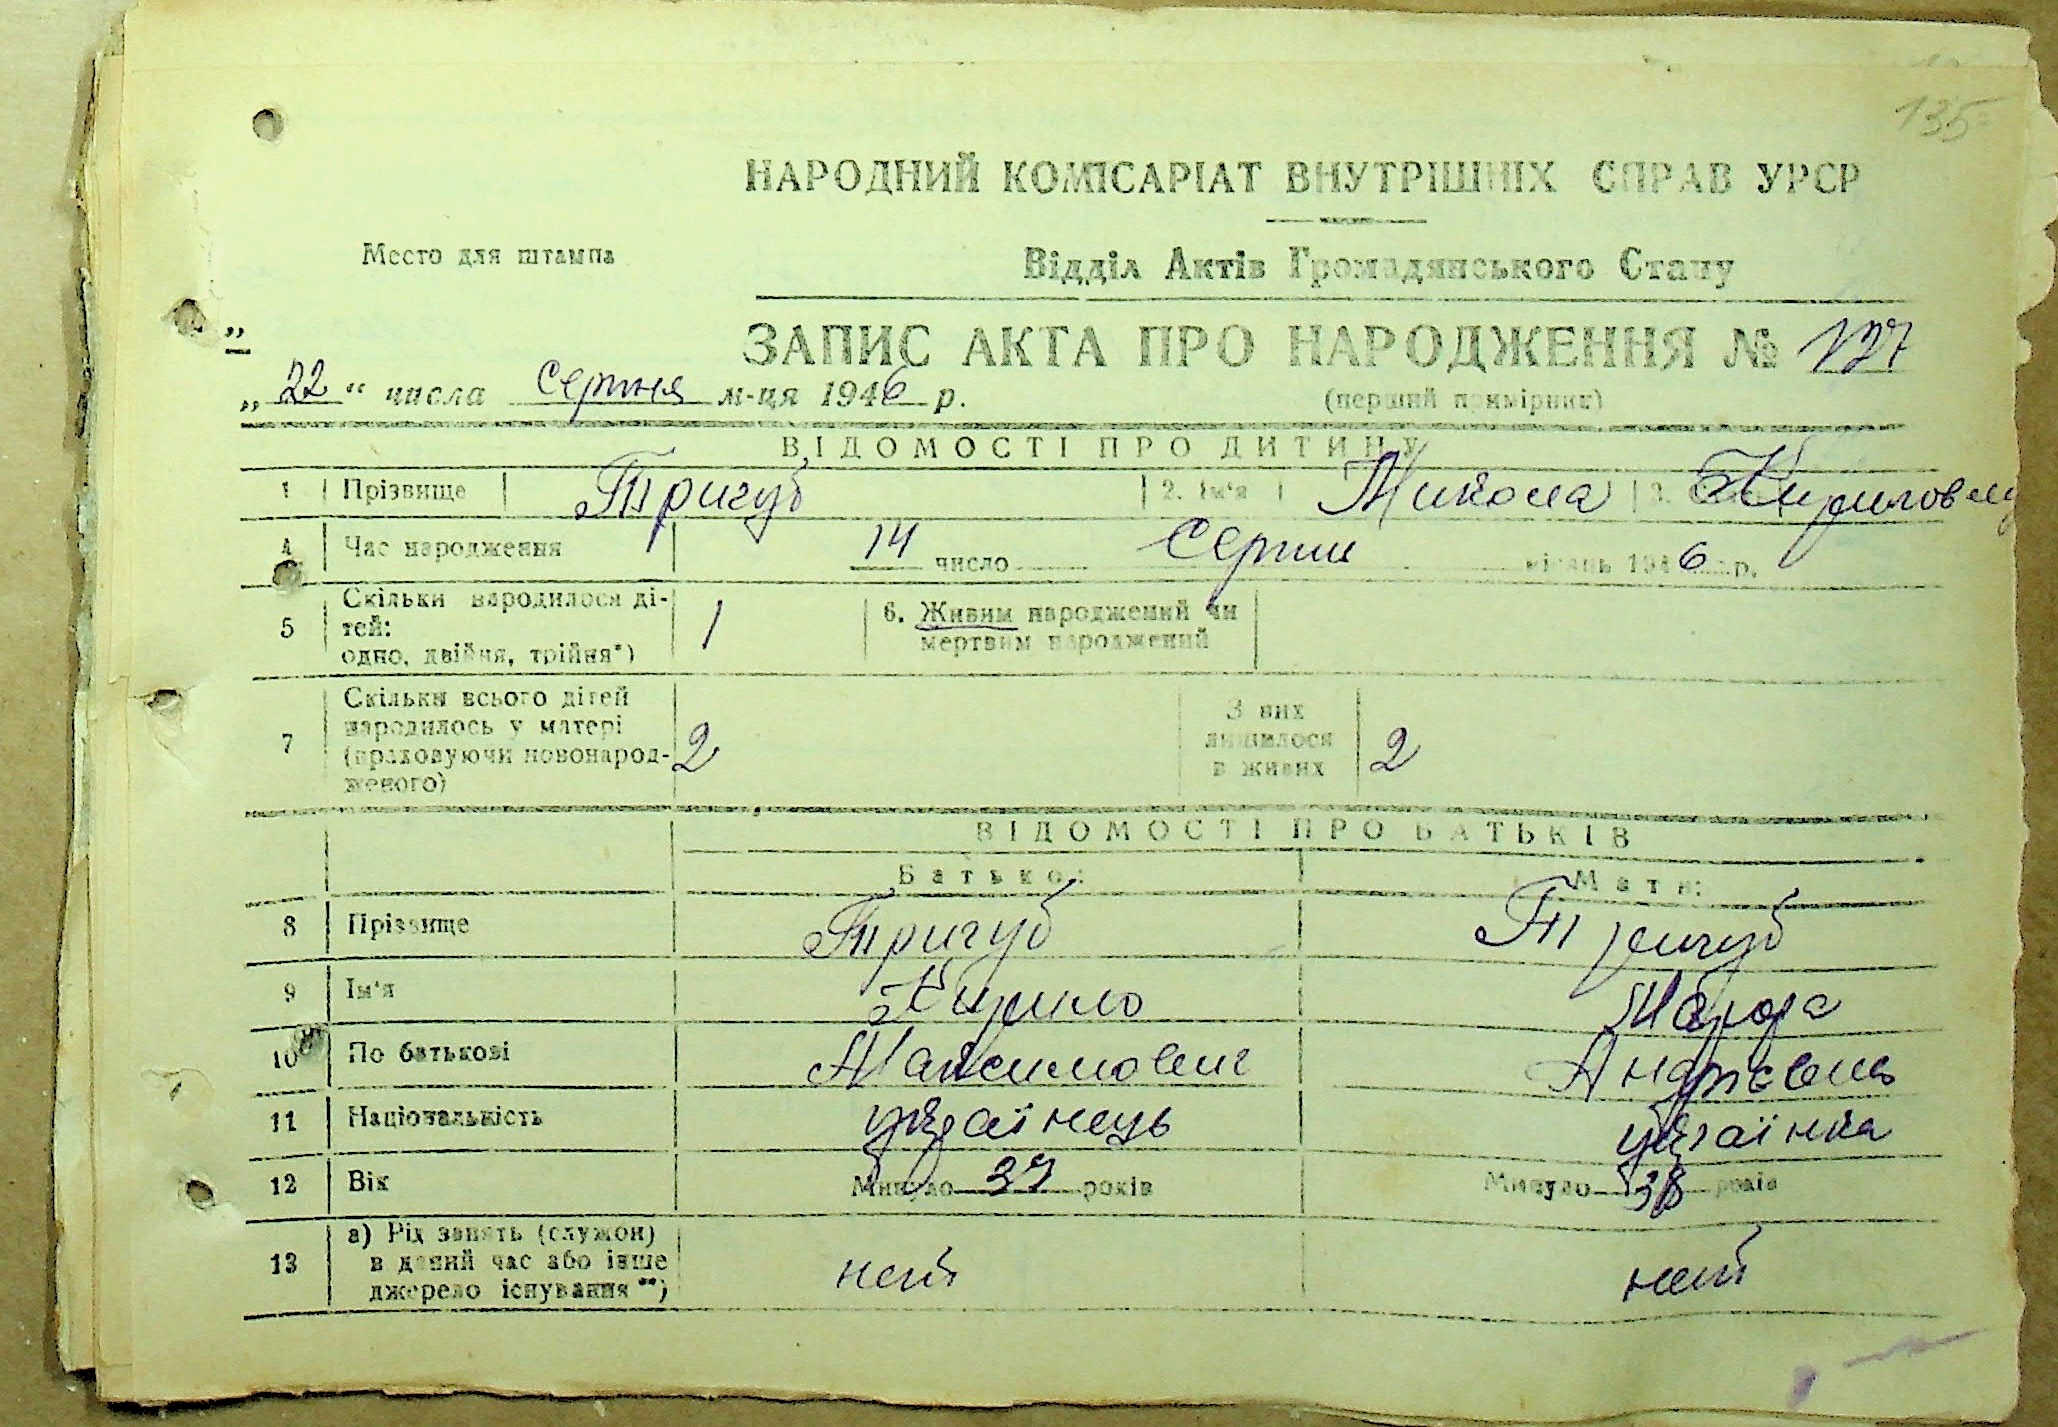 135
НАРОДНИЙ КОМІСАРІАТ ВНУТРІШНІХ СПРАВ УРСР
Место для штампа
Відділ Актів Громадянського Стану
ЗАПИС АКТА ПРО НАРОДЖЕННЯ № 127
„ 22 “ числа Серпня м-ця 1946 р.
(перший примірник)
ВІДОМОСТІ ПРО ДИТИНУ
1 Прізвище Тригуб 2. Ім'я Микола 3. Кирилович
4 Час народження 14 число Серпня місяць 1946 р.
5 Скільки народилося ді-
тей:
одно, двійня, трійня*) 1
6. Живим народжений чи
мертвим народжений
7 Скільки всього дітей
народилось у матері
(враховуючи новонарод-
женого) 2
З них
лишилося
в живих 2
ВІДОМОСТІ ПРО БАТЬКІВ
Батько: Мати:
8 Прізвище Тригуб Тригуб
9 Ім'я Кирило
10 По батькові Максимович
11 Національність українець українка
12 Вік Минуло 37 років Минуло 38 років
13 а) Рід занять (служби)
в даний час або інше
джерело існування**) нет нет